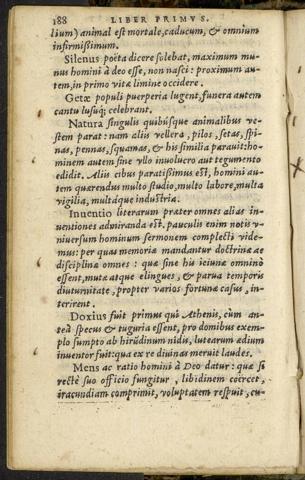 188 LIBER PRIMVS.
lium) animal est mortale, caducum, & omnium
infirmissimum.
Silenus poëta dicere solebat, maximum mu-
nus homini à deo esse, non nasci: proximum au-
tem, in primo vitæ limine occidere.
Getæ populi puerperia lugent, funera autem
cantu lusuq; celebrant.
Natura singulis quibusque animalibus ve-
stem parat: nam aliis vellera, pilos, setas, spi-
nas, pennas, squamas, & his similia parauit: ho-
minem autem sine vllo inuolucro aut tegumento
edidit. Aliis cibus paratissimus est, homini au-
tem quærendus multo studio, multo labore, multa
vigilia, multáque industria.
Inuentio literarum præter omnes alias in-
uentiones admiranda est, pauculis enim notis v-
niuersum hominum sermonem complecti vide-
mus: per quas memoria mandantur doctrinæ ac
disciplinæ omnes: quæ sine his ieiunæ omnino
essent, mutæ atque elingues, & parua temporis
diuturnitate, propter varios fortunæ casus, in-
terirent.
Doxius fuit primus qui Athenis, cùm an-
teà specus & tuguria essent, pro domibus exem-
plo sumpto ab hirūdinum nidis, lutearum ædium
inuentor fuit: qua ex re diuinas meruit laudes.
Mens ac ratio homini à Deo datur: quæ si
rectè suo officio fungitur, libidinem coërcet,
iracundiam comprimit, voluptatem respuit, cu-